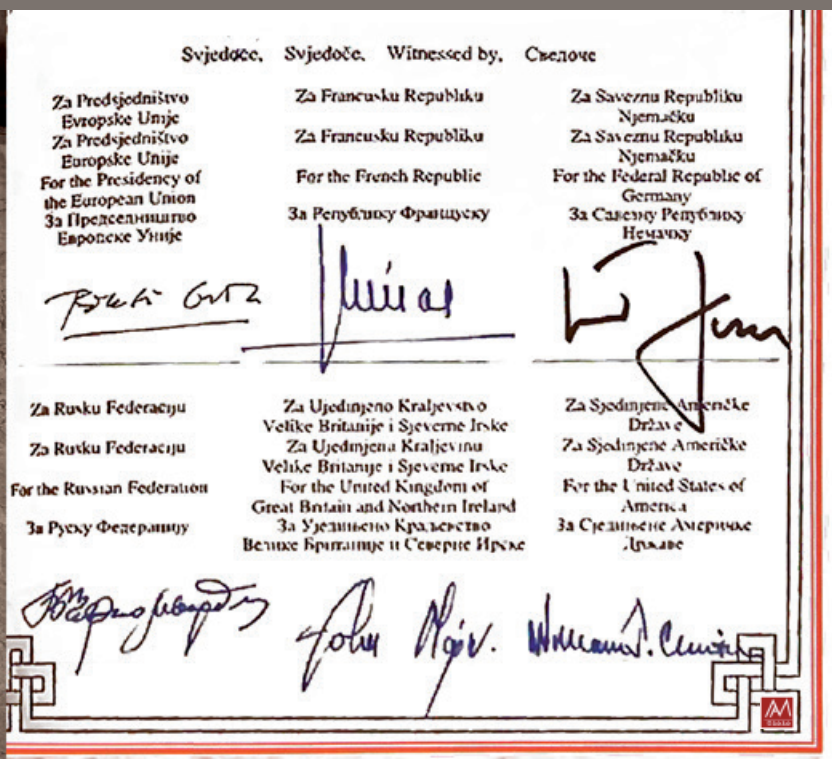 Svjedoče, Svjedoče, Witnessed by, Сведоче
Za Predsjedništvo
Evropske Unije
Za Predsjedništvo
Europske Unije
For the Presidency of
the European Union
За Председништво
Европске Уније
Za Francusku Republiku
Za Francusku Republiku
For the French Republic
За Републику Француску
Za Saveznu Republiku
Njemačku
Za Saveznu Republiku
Njemačku
For the Federal Republic of
Germany
За Савезну Републику
Немачку
Za Rusku Federaciju
Za Rusku Federaciju
For the Russian Federation
За Руску Федерацију
Za Ujedinjeno Kraljevstvo
Velike Britanije i Sjeverne Irske
Za Ujedinjena Kraljevinu
Velike Britanije i Sjeverne Irske
For the United Kingdom of
Great Britain and Northern Ireland
За Уједињено Краљевство
Велике Британије и Северне Ирске
Za Sjedinjene Američke
Države
Za Sjedinjene Američke
Države
For the United States of
America
За Сједињене Америчке
Државе
John Major.
William J. Clinton